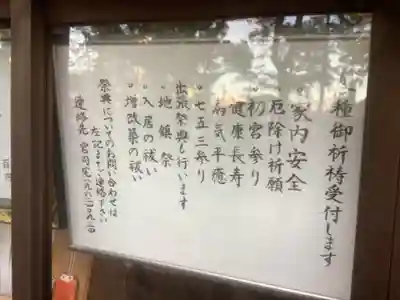 種御祈祷受付します
。家内安全
厄除け祈願
。初宮参り
健康長寿
病気平癒
。七五三参り
出張祭典も行います
。地鎮祭
。入居の祓い
。増改築の祓い
祭典についてのお問い合わせは
左記までご連絡下さい
連絡先 宮司宅